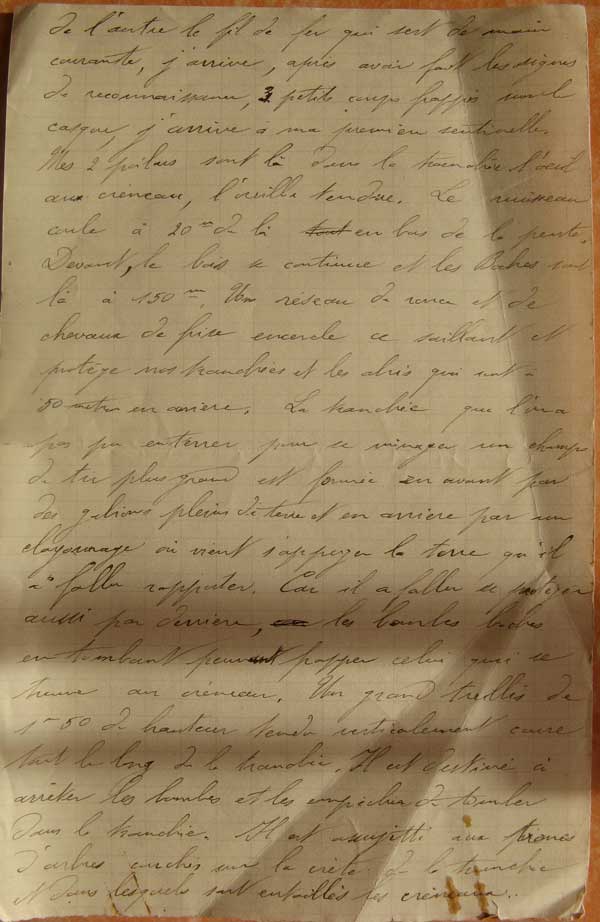 de l'autre le fil de fer qui sert de main
courante, j'arrive, après avoir fait les signes
de reconnaissance, 3 petits coups frappés sur le
casque, j'arrive à ma première sentinelle.
Mes 2 poilus sont là dans la tranchée l'œil
aux créneau, l'oreille tendue. Le ruisseau
coule à 20 m de là tout en bas de la pente.
Devant, le bois se continue et les Boches sont
là à 150 m. Un réseau de ronce et de
chevaux de frise encercle ce saillant et
protège nos tranchées et les abris qui sont à
50 mètres en arrière. La tranchée que l'on a
pas pu enterrer pour se ménager un champ
de tir plus grand est formée en avant par
des gabions pleins de terre et en arrière par un
clayonnage où vient s'appuyer la terre qu'il
a fallu rapporter. Car il a fallu se protéger
aussi par derrière, les bombes boches
en tombant peuvent frapper celui qui se
trouve au créneau. Un grand treillis de
1m50 de hauteur tendu verticalement courre
tout le long de la tranchée. Il est destiné à
arrêter les bombes et les empêcher de tomber
dans la tranchée. Il est assujetti aux troncs
d'arbres couchés sur la crête de la tranchée
et dans lesquels sont entaillés les créneaux..